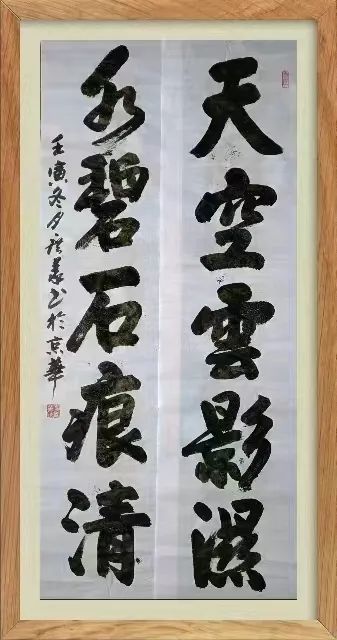 天空雲影濕
水碧石痕清
壬寅冬月 書於京華